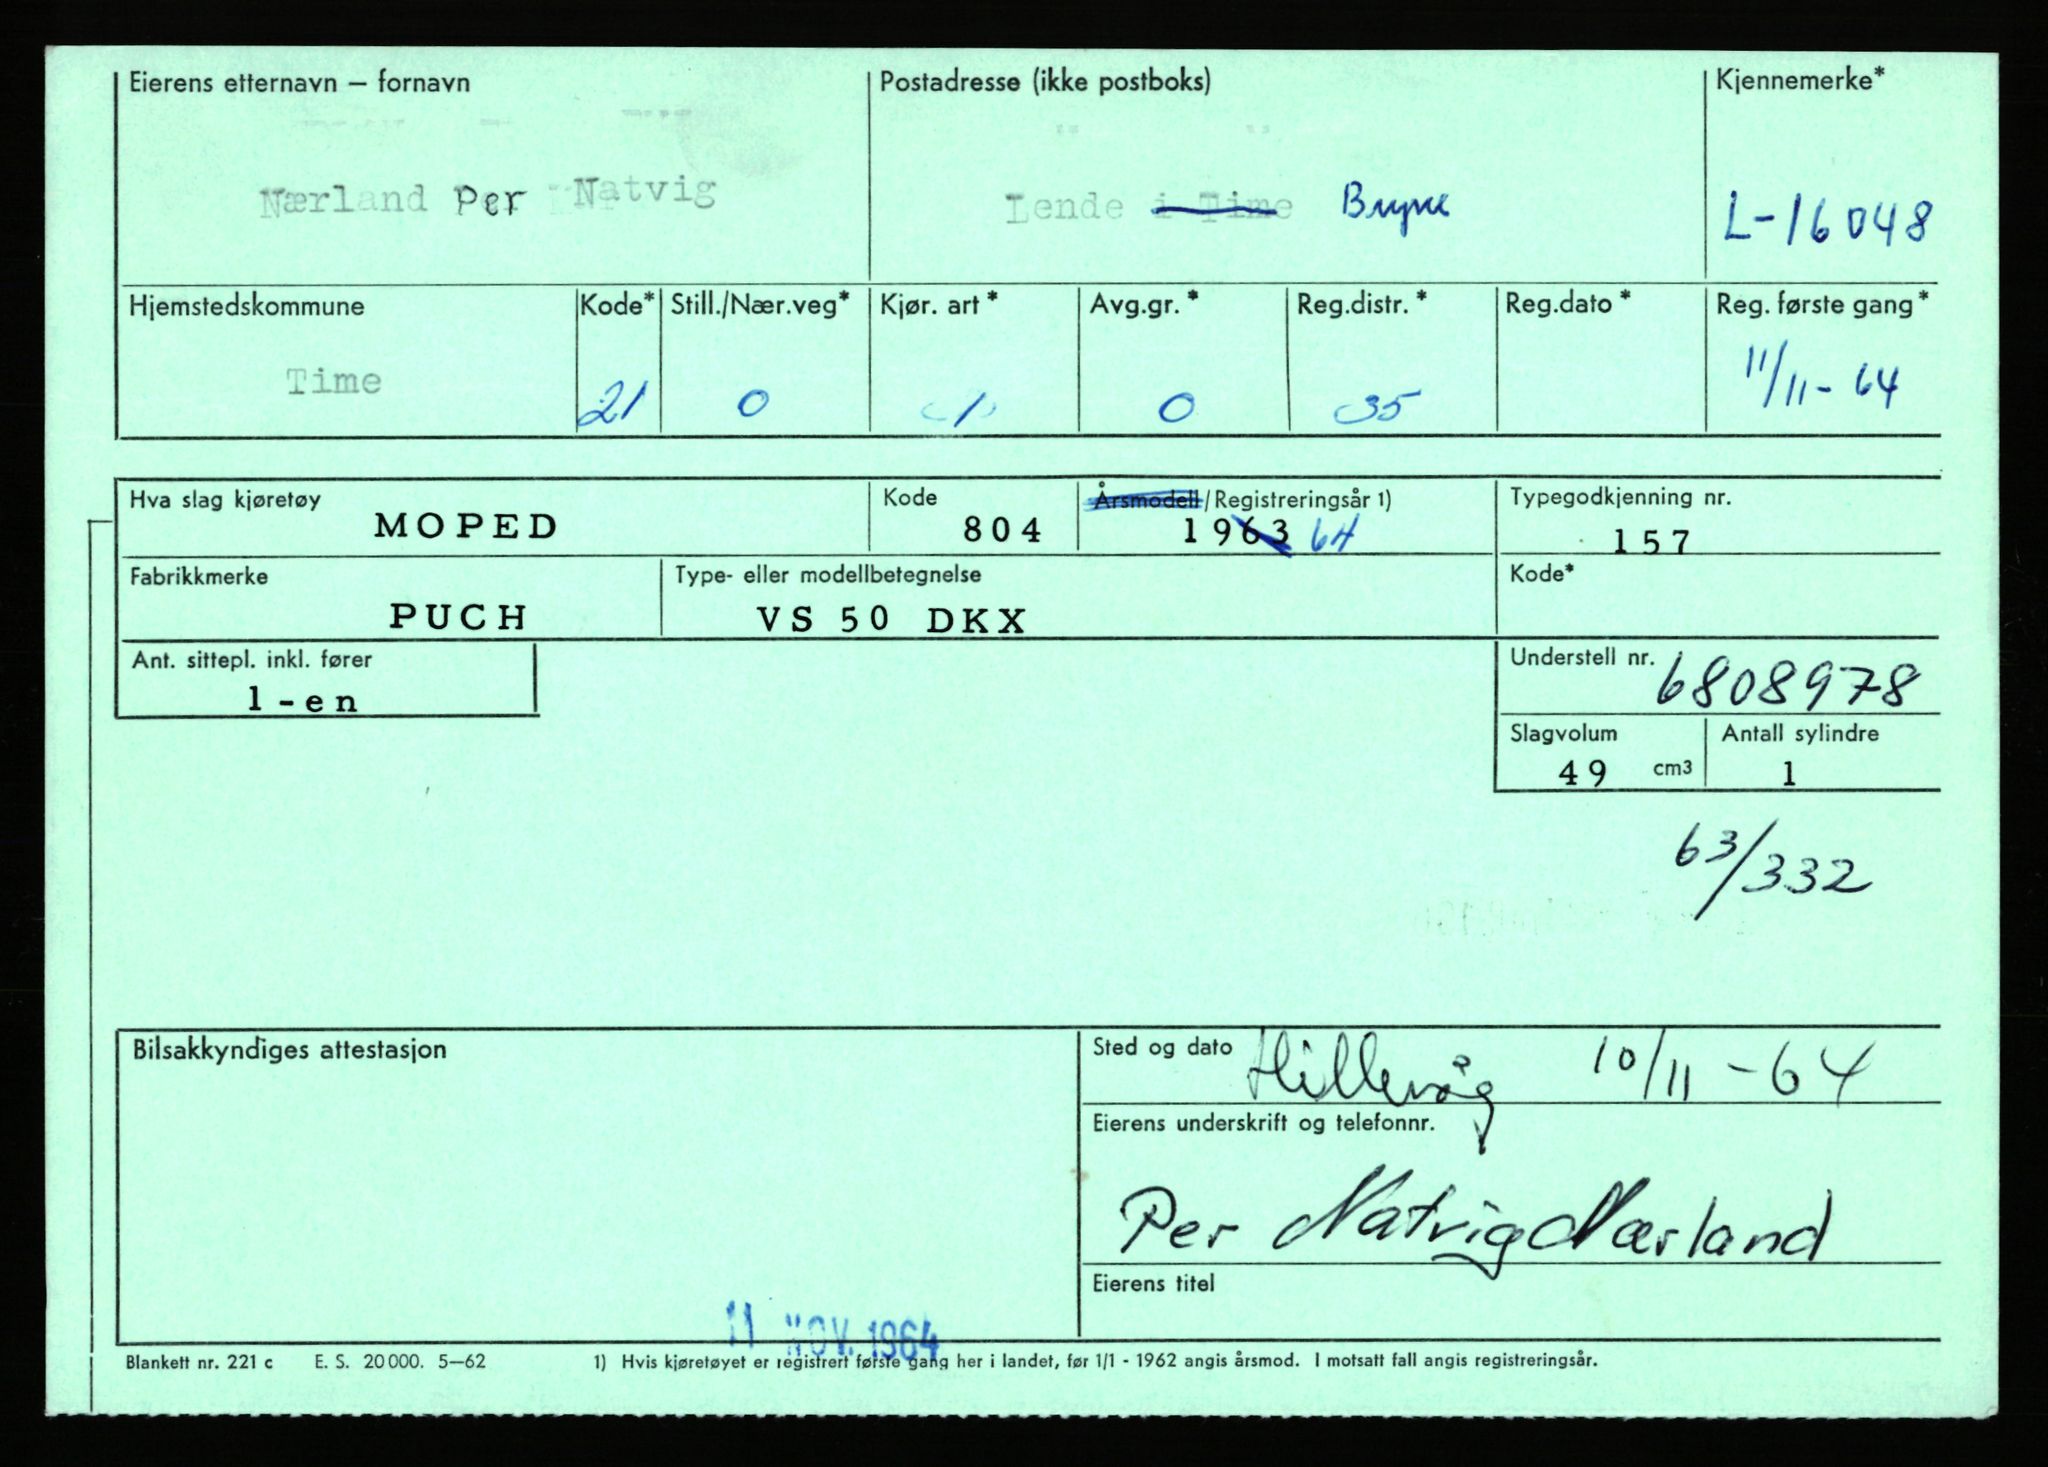 Eierens etternavn — fornavn Postadresse (ikke postboks) Kjennemerke*
Nærland Per Natvig Lende i Time Bryne L-16048
Hjemstedskommune Kode* Still./Nær.veg* Kjør. art* Avg.gr.* Reg.distr.* Reg.dato* Reg. første gang*
Time 21 0 1 0 35 11/11-64
Hva slag kjøretøy Kode Årsmodell/Registreringsår 1) Typegodkjenning nr.
MOPED 804 1963 64 157
Fabrikkmerke Type- eller modellbetegnelse Kode*
PUCH VS 50 DKX
Ant. sittepl. inkl. fører Understell nr.
1-en 6808978
Slagvolum Antall sylindre
49 cm3 1
63/332
Bilsakkyndiges attestasjon Sted og dato Hillevåg 10/11-64
Eierens underskrift og telefonnr.
Per Natvig Nærland
Eierens titel
11 NOV. 1964
Blankett nr. 221 c E. S. 20000. 5—62 1) Hvis kjøretøyet er registrert første gang her i landet, før 1/1 - 1962 angis årsmod. I motsatt fall angis registreringsår.